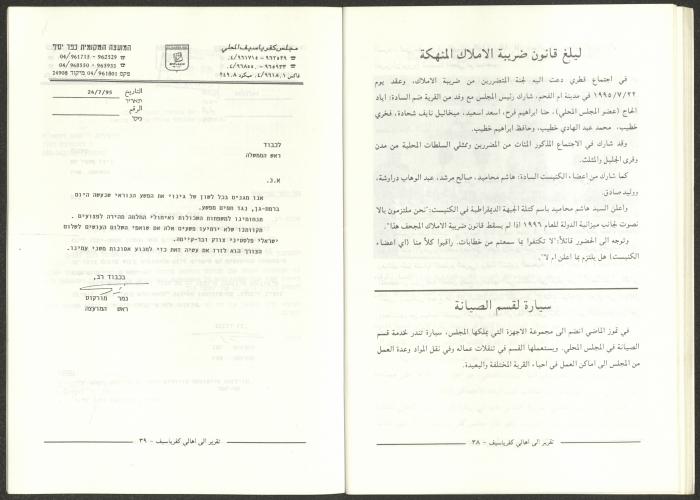 ليلغ قانون ضريبة الاملاك المنهكة
في اجتماع قطري دعت اليه لجنة المتضررين من ضريبة الاملاك، وعقد يوم
١٩٩٥/٧/٢٢ في مدينة ام الفحم، شارك رئيس المجلس مع وفد من القرية ضم السادة: اياد
الحاج (عضو المجلس المحلي)، حنا ابراهيم فرح، اسعد اسعيد، ميخائيل نايف شحادة، فخري
خطيب، محمد عبد الهادي خطيب، وحافظ ابراهيم خطيب.
وقد شارك في الاجتماع المذكور المئات من المتضررين وممثلي السلطات المحلية من مدن
وقرى الجليل والمثلث.
كما شارك من اعضاء الكنيست السادة: هاشم محاميد، صالح مرشد، عبد الوهاب دراوشة،
ووليد صادق.
واعلن السيد هاشم محاميد باسم كتلة الجبهة الديمقراطية في الكنيست:"نحن ملتزمون بالا
نصوت لجانب ميزانية الدولة للعام ١٩٩٦ اذا لم يسقط قانون ضريبة الاملاك المجحف هذا"
وتوجه الى الحضور قائلاً:"لا تكتفوا بما سمعتم من خطابات. راقبوا كلاً منا (اي اعضاء
الكنيست) هل يلتزم بما اعلن ام لا".
سيارة لقسم الصيانة
في تموز الماضي انضم الى مجموعة الاجهزة التي يملكها المجلس، سيارة تندر لخدمة قسم
الصيانة في المجلس المحلي. ويستعملها القسم في تنقلات عماله وفي نقل المواد وعدة العمل
من المجلس الى اماكن العمل في احياء القرية المختلفة والبعيدة.
تقرير الى اهالي كفرياسيف - ٣٨
مجلس كفرياسيف المحلي
המועצה המקומית כפר יסיף
04/961713 - 962529
04/968550 - 965933
פקס 04/961801 מיקוד 24908
التاريخ
תאריך
24/7/95
الرقم
מיספר
לכבוד
ראש הממשלה
א.נ.
אנו מגנים בכל לשון של גינוי את הפשע הנוראי שבעשה היום
ברמת-גן, נגד חפים מפשע.
תנחומינו למשפחות השכולות ואיחולי החלמה מהירה לפצועים.
תקוותנו שלא ירתיעו פשעים אלה את שואפי השלום העושים לשלום
ישראלי פלסטיני צודק ובר-קיימא.
הצורך הוא לזרז את עשיה זאת כדי למנוע אסונות משני עמינו.
בכבוד רב,
נמר מורקוס
ראש המועצה
تقرير الى اهالي كفرياسيف - ٣٩